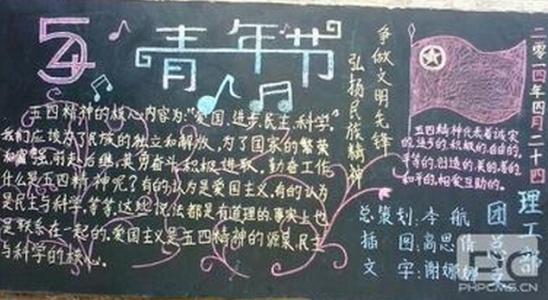 54 青年节
五四精神的核心内容为"爱国、进步、民主、科学"。
我们应该为了民族的独立和解放，为了国家的繁荣
和富强，前赴后继，英勇奋斗，积极进取，勤奋工作
什么是五四精神呢？有的认为是爱国主义，有的认为
是民主与科学，等等，这些说法都是有道理的。事实上也
是联系在一起的。爱国主义是五四精神的源泉，民主
与科学的核心。
争做文明先锋
弘扬民族精神
五四精神代表着诚实
的、进步的、积极的、自由的、
平等的、创造的、美的、善的
和平的、相爱互助的。
二零一四年四月二十四
总策划：李航
插图：高思倩
文字：谢娜娜
理工部
团总支
PHPCMS.CN